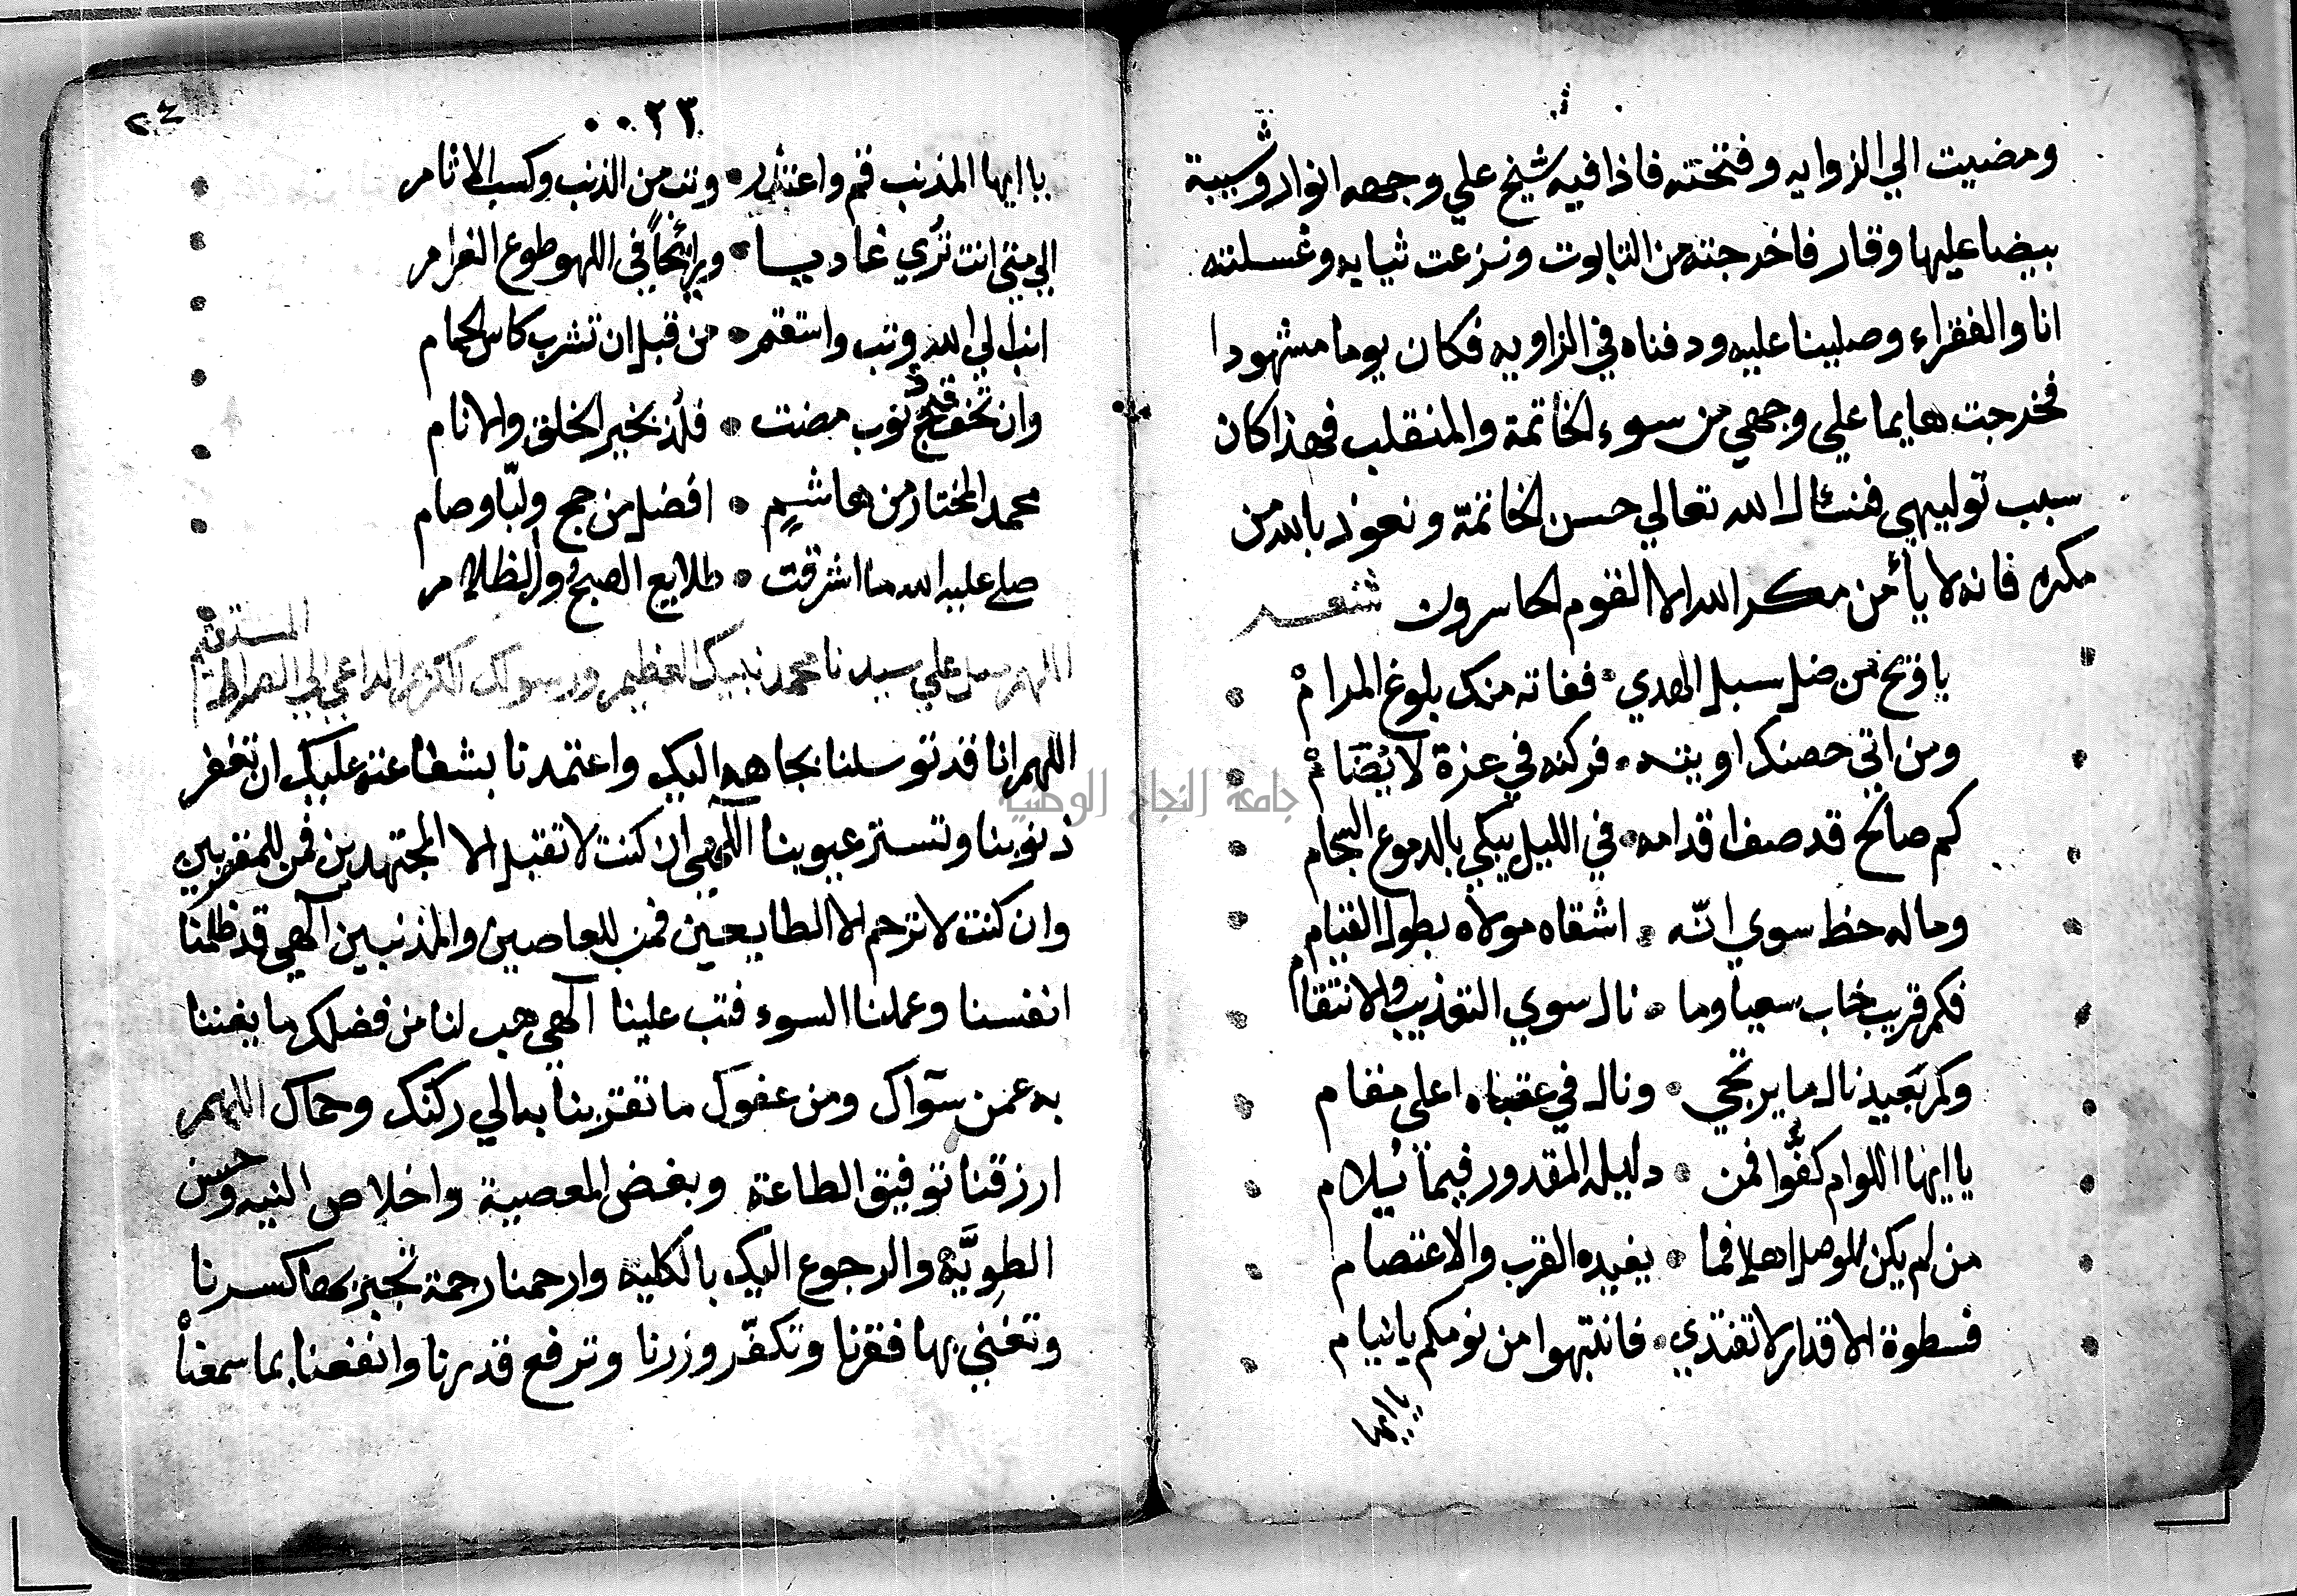 ومضيت الي الزوايه وفتحته فاذا فيه شيخ علي وجهه انوار وشيبة
بيضا عليها وقار فاخرجته من التابوت ونزعت ثيابه وغسلته
انا والفقراء وصلينا عليه ودفناه في الزاويه فكان يوما مشهودا
فخرجت هايما علي وجهي من سوء الخاتمة والمنقلب فهذا كان
سبب توليهي فنسئال الله تعالي حسن الخاتمة ونعوذ بالله من
مكره فانه لا يأمن مكر الله الا القوم الخاسرون شعر
يا فتح من ضل سبل الهدي • ففاته منك بلوغ المرام
ومن اتي حصنك اويته • فركنه في عزة لا يضام
كم صالح قد صف اقدامه • في الليل يبكي بالدموع السجام
وماله حظ سوي انّه • اشقاه مولاه بطول القيام
فكم قريب خاب سعيا وما • نال سوي التعذيب والانتقام
وكم بعيد نال ما يرتجي • ونال في عقباه اعلي مقام
يا ايها اللوام كفّوا فمن • دليله المقدور فيما يلام
من لم يكن للوصل اهلا فما • يفيده القرب والاعتصام
فسطوة الاقدار لا تفتدي • فانتبهوا من نومكم يا نيام
يا ايها
٢٤
٢٣
يا ايها المذنب قم واعتذر • وتب من الذنب وكسب الاثام
الي متي انت تري غاديا • ورايحاً في اللهو طوع الغرام
انب الي الله وتب واستقم • من قبل ان تشرب كاس الحمام
وان تخف ذنوب مضت • فلذ بخير الخلق والانام
محمد المختار من هاشمٍ • افضل من حج ولبّا وصام
صلي عليه الله ما اشرقت • طلايع الصبح والظلام
اللهم صل علي سيدنا محمد نبيك العظيم ورسولك الكريم الداعي الي الصراط المستقيم
اللهم انا قد توسلنا بجاهه اليك واعتمدنا بشفاعته عليك ان تغفر
ذنوبنا وتستر عيوبنا الهي ان كنت لا تقبل الا المجتهدين فمن للمقصرين
وان كنت لا ترحم الا الطايعين فمن للعاصين والمذنبين الهي قد ظلمنا
انفسنا وعملنا السوء فتب علينا الهي هب لنا من فضلك ما يغننا
به عمن سواك ومن عفوك ما تقربنا به الي ركنك وحماك اللهم
ارزقنا توفيق الطاعة وبغض المعصية واخلاص النيه وحسن
الطويَّه والرجوع اليك بالكلية وارحمنا رحمة تجبر بها كسرنا
وتغني بها فقرنا وتكفّر وزرنا وترفع قدرنا وانفعنا بما سمعنا
جامعة النجاح الوطنية